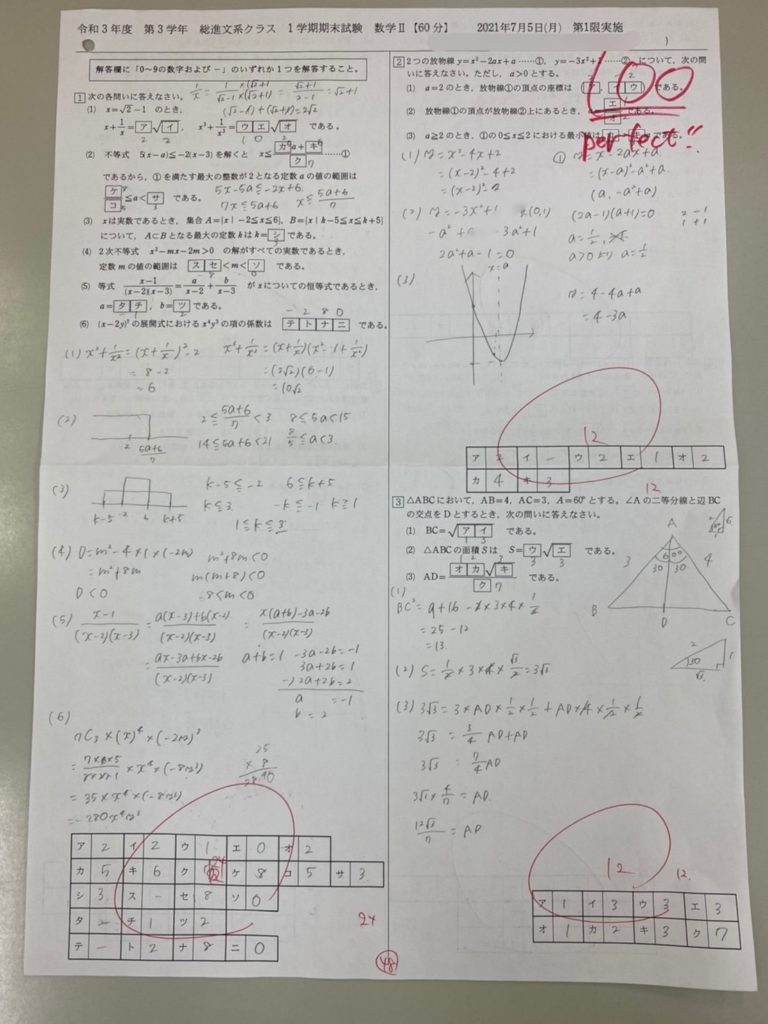 令和3年度　第3学年　総進文系クラス　1学期期末試験　数学Ⅱ【60分】　2021年7月5日(月)　第1限実施
解答欄に「0～9の数字および－」のいずれか1つを解答すること。
1 次の各問いに答えなさい。
(1) x=√2－1 のとき,
x+1/x=ア√イ, x³+1/x³=ウエ√オ である。
(2) 不等式 5(x－a)≦－2(x－3)を解くと x≦(カa+キ)/ク ……①
であるから、①を満たす最大の整数が2となる定数aの値の範囲は
ケ/コ≦a<サ である。
5x-5a≦-2x+6
7x≦5a+6 x≦(5a+6)/7
(3) xは実数であるとき, 集合A={x|－2≦x≦6}, B={x|k－5≦x≦k+5}
について, A⊂Bとなる最大の定数kはk=シ である。
(4) 2次不等式 x²－mx－2m>0 の解がすべての実数であるとき,
定数mの値の範囲は スセ<m<ソ である。
(5) 等式 (x－1)/((x－2)(x－3))=a/(x－2)+b/(x－3) がxについての恒等式であるとき,
a=タチ, b=ツ である。
(6) (x－2y)⁷の展開式におけるx⁴y³の項の係数は テトナニ である。
(1) x²+1/x²=(x+1/x)²-2 x³+1/x³=(x+1/x)(x²-1+1/x²)
=8-2 =(2√2)(6-1)
=6 =10√2
(2) 2≦(5a+6)/7<3 8≦5a<15
2 (5a+6)/7 14≦5a+6<21 8/5≦a<3
(3) k-5≦-2 6≦k+5
k-5 -2 6 k+5 k≦3 -k≦-1 k≧1
1≦k≦3
(4) D=m²-4×1×(-2m) m²+8m<0
=m²+8m m(m+8)<0
D<0 -8<m<0
(5) (x-1)/((x-2)(x-3)) = (a(x-3)+b(x-2))/((x-2)(x-3)) = (x(a+b)-3a-2b)/((x-2)(x-3))
=(ax-3a+bx-2b)/((x-2)(x-3)) a+b=1 -3a-2b=-1
3a+2b=1
-)2a+2b=2
a=-1
b=2
(6)
=-280x⁴
ア 2 イ 2 ウ 1 エ 0 オ 2
カ 5 キ 6 ク ケ 8 コ 5 サ 3
シ 3 ス - セ 8 ソ 0
タ - チ 1 ツ 2
テ - ト 2 ナ 8 ニ 0
24
48
2 2つの放物線 y=x²－2ax+a ……①, y=－3x²+1 ……② について, 次の問
いに答えなさい。ただし, a>0とする。
(1) a=2のとき, 放物線①の頂点の座標は(ア, イウ)である。
(2) 放物線①の頂点が放物線②上にあるとき, エ/オ である。
100
perfect!!
(1) y=x²-4x+2 ① y=x²-2ax+a
=(x-2)²-4+2 =(x-a)²-a²+a
=(x-2)²-2 (a, -a²+a)
(2) y=-3x²+1 (2a-1)(a+1)=0
2a²+a-1=0 a>0より a=1/2
(3) x=a y=4-4a+a
=4-3a
12
ア 2 イ - ウ 2 エ 1 オ 2
カ 4 キ 3
12
3 △ABCにおいて, AB=4, AC=3, A=60°とする。∠Aの二等分線と辺BC
の交点をDとするとき, 次の問いに答えなさい。
(1) BC=√アイ である。
(2) △ABCの面積Sは S=ウ√エ である。
(3) AD=オカ√キ/ク である。
A
60°
3 30 30 4
B D C
(1)
BC²=9+16-2×3×4×1/2
=25-12
=13
(2) S=1/2×3×4×√3/2=3√3
(3) 3√3=3×AD×1/2×1/2+AD×4×1/2×1/2
3√3 = 3/4 AD+AD
3√3 = 7/4 AD
3√3×4/7=AD
12√3/7=AD
12
12
ア 1 イ 3 ウ 3 エ 3
オ 1 カ 2 キ 3 ク 7